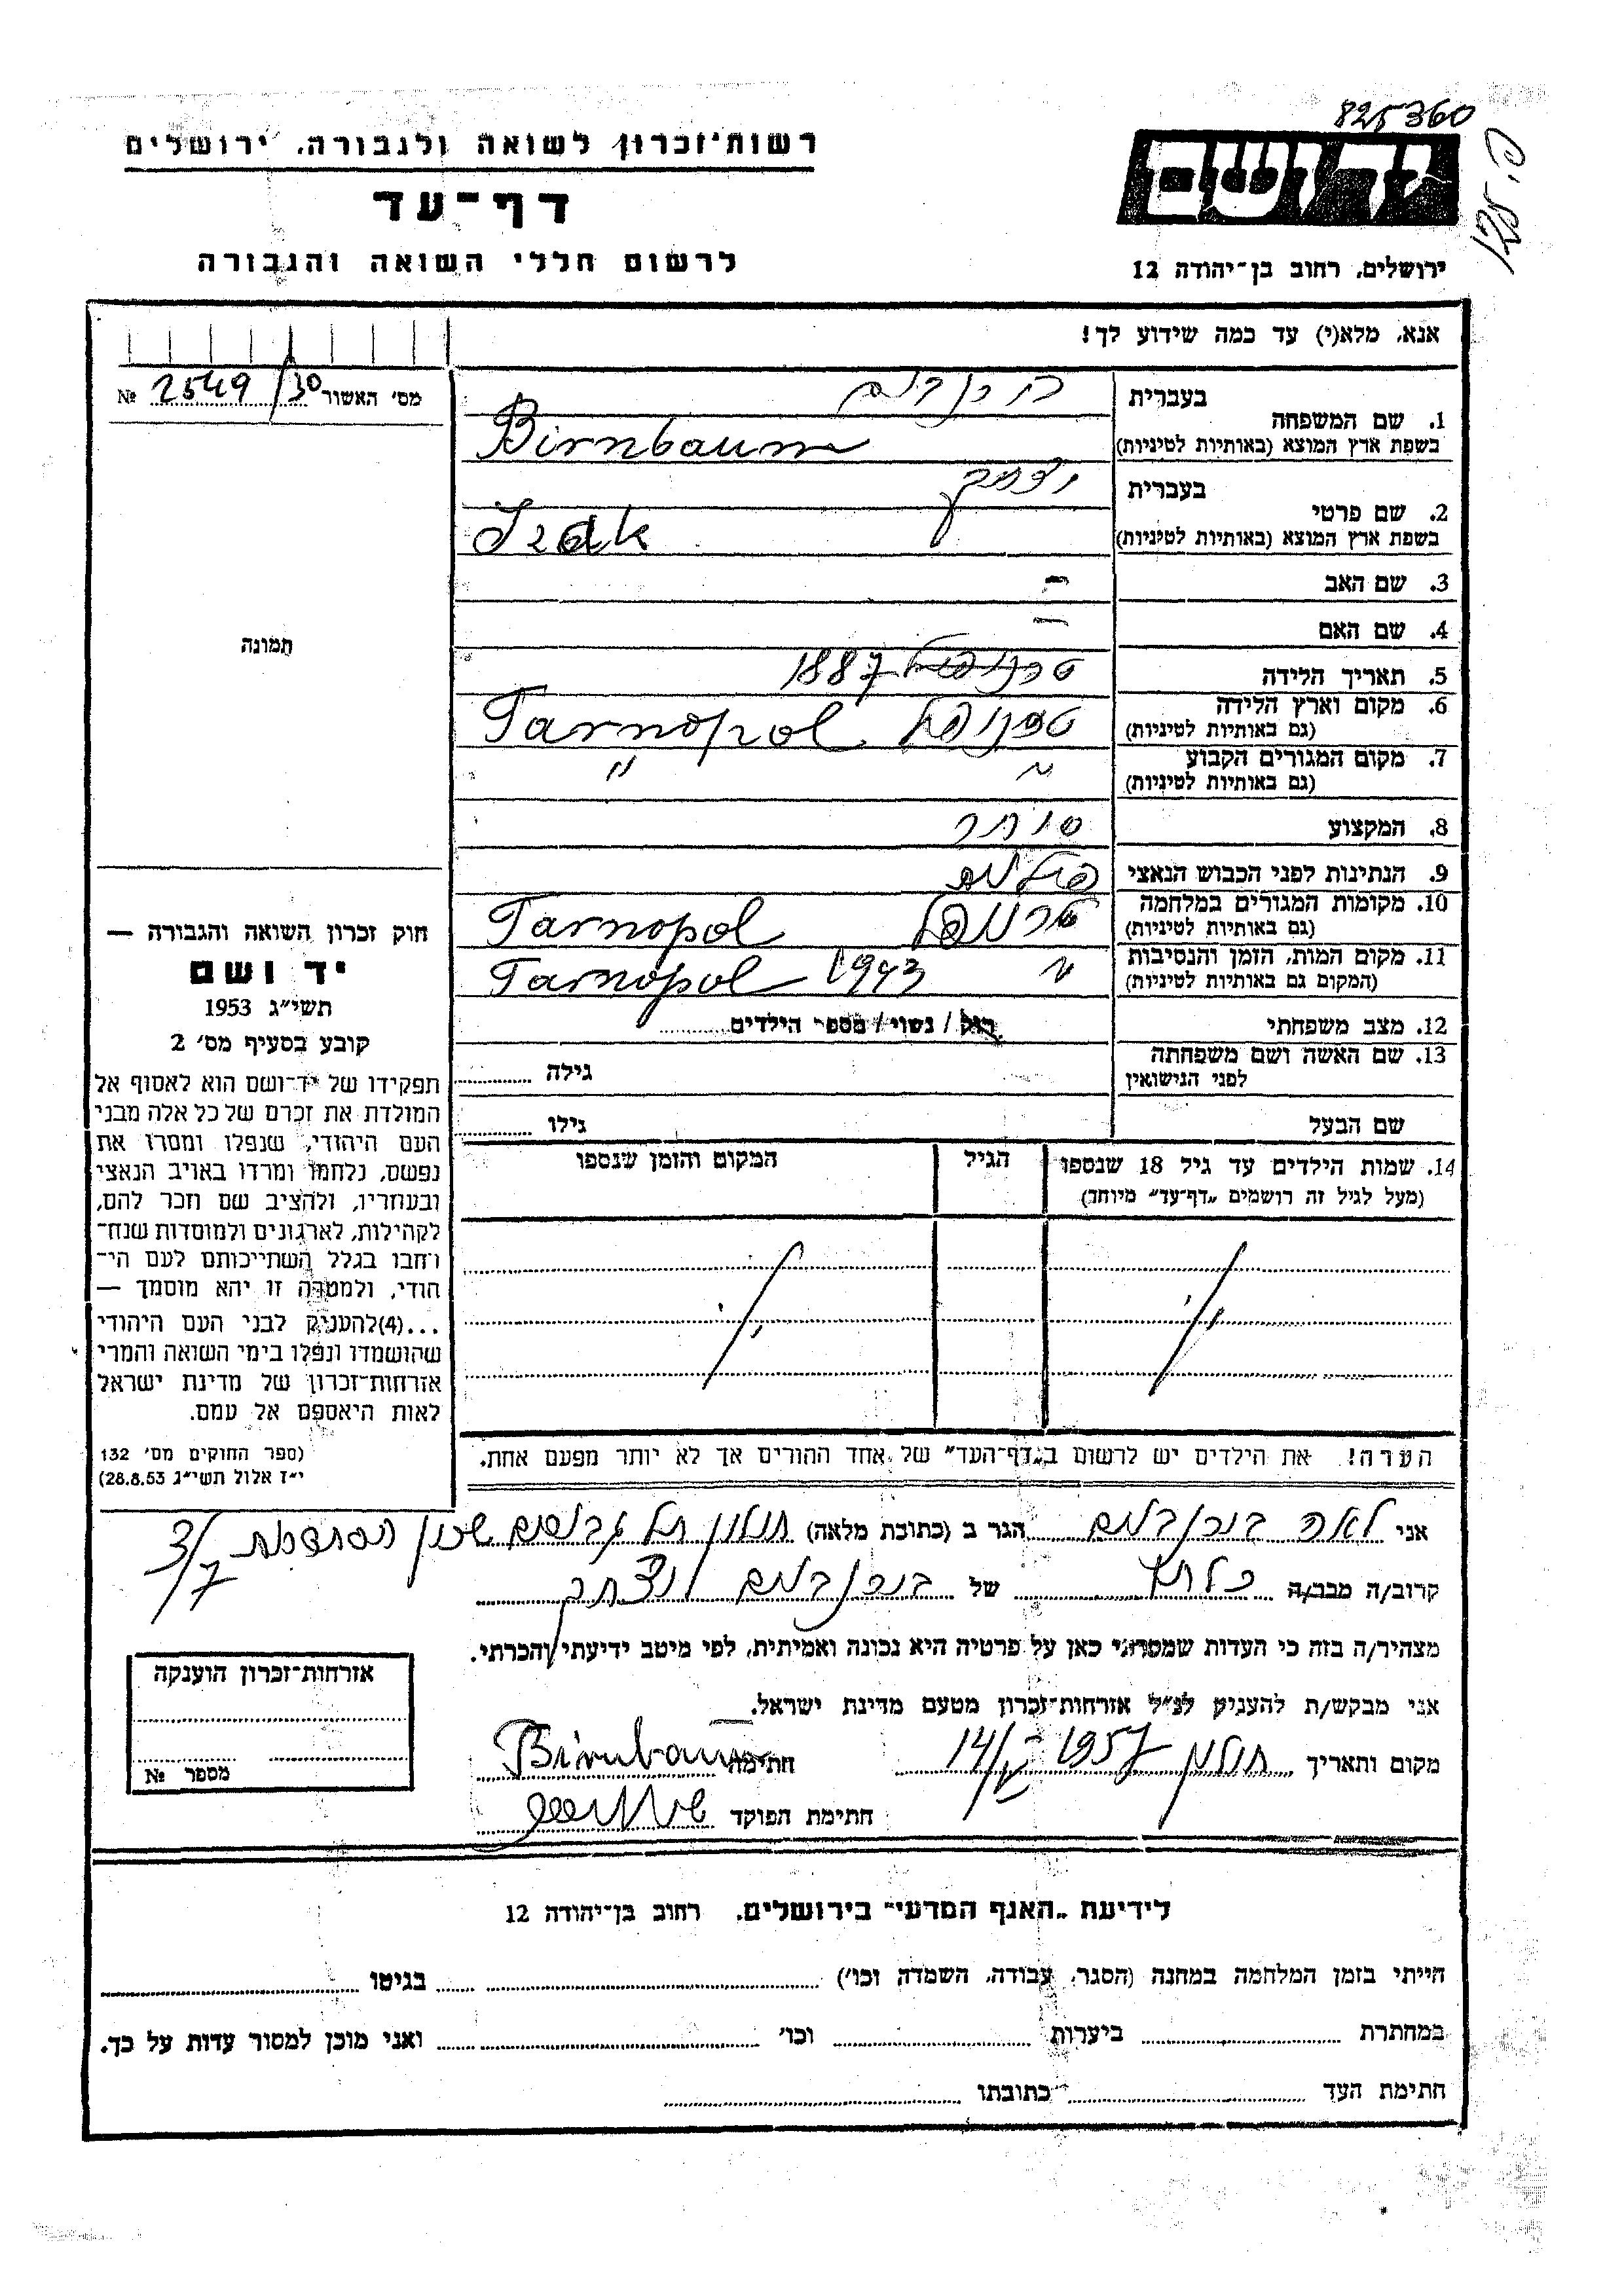 825360
רשות־זכרון לשואה ולגבורה. ירושלים
דף־עד
לרשום חללי השואה והגבורה
ידושם
ירושלים, רחוב בן־יהודה 12
אנא, מלא(י) עד כמה שידוע לך!
מס׳ האשור 2549/30 №
תמונה
1. שם המשפחה בעברית בירנבוים
בשפת ארץ המוצא (באותיות לטיניות) Birnbaum
2. שם פרטי בעברית יצחק
בשפת ארץ המוצא (באותיות לטיניות) Izak
3. שם האב –
4. שם האם –
5. תאריך הלידה 1887
6. מקום וארץ הלידה (גם באותיות לטיניות) טרנופול Tarnopol
7. מקום המגורים הקבוע (גם באותיות לטיניות) " "
8. המקצוע סוחר
9. הנתינות לפני הכבוש הנאצי פולנית
10. מקומות המגורים במלחמה (גם באותיות לטיניות) טרנופול Tarnopol
11. מקום המות, הזמן והנסיבות (המקום גם באותיות לטיניות) " 1943 Tarnopol
12. מצב משפחתי רוק / נשוי / מספר הילדים
13. שם האשה ושם משפחתה לפני הנישואין גילה
שם הבעל גילו
14. שמות הילדים עד גיל 18 שנספו הגיל המקום והזמן שנספו
(מעל לגיל זה רושמים „דף־עד״ מיוחד)
הערה! את הילדים יש לרשום ב„דף־העד״ של אחד ההורים אך לא יותר מפעם אחת.
חוק זכרון השואה והגבורה —
יד ושם
תשי״ג 1953
קובע בסעיף מס׳ 2
תפקידו של יד־ושם הוא לאסוף אל
המולדת את זכרם של כל אלה מבני
העם היהודי, שנפלו ומסרו את
נפשם, נלחמו ומרדו באויב הנאצי
ובעוזריו, ולהציב שם וזכר להם,
לקהילות, לארגונים ולמוסדות שנח־
רחבו בגלל השתייכותם לעם הי־
חודי, ולמטרה זו יהא מוסמך —
...(4)להעניק לבני העם היהודי
שהושמדו ונפלו בימי השואה והמרי
אזרחות־זכרון של מדינת ישראל
לאות היאספם אל עמם.
(ספר החוקים מס׳ 132
י״ז אלול תשי״ג 28.8.53)
אני לאה בירנבוים הגר ב (כתובת מלאה) חולון תל גבורים שכון 3/7
קרוב/ה מכר/ה כלתו של בירנבוים יצחק
מצהיר/ה בזה כי העדות שמסרתי כאן על פרטיה היא נכונה ואמיתית, לפי מיטב ידיעתי והכרתי.
אני מבקש/ת להעניק לנ״ל אזרחות־זכרון מטעם מדינת ישראל.
מקום ותאריך חולון 1957 חתימה Birnbaum
חתימת הפוקד
אזרחות־זכרון הוענקה
מספר №
לידיעת „האגף המדעי״ בירושלים. רחוב בן־יהודה 12
הייתי בזמן המלחמה במחנה (הסגר, עבודה, השמדה וכו׳) בגיטו
במחתרת ביערות וכו׳ ואני מוכן למסור עדות על כך.
חתימת העד כתובתו